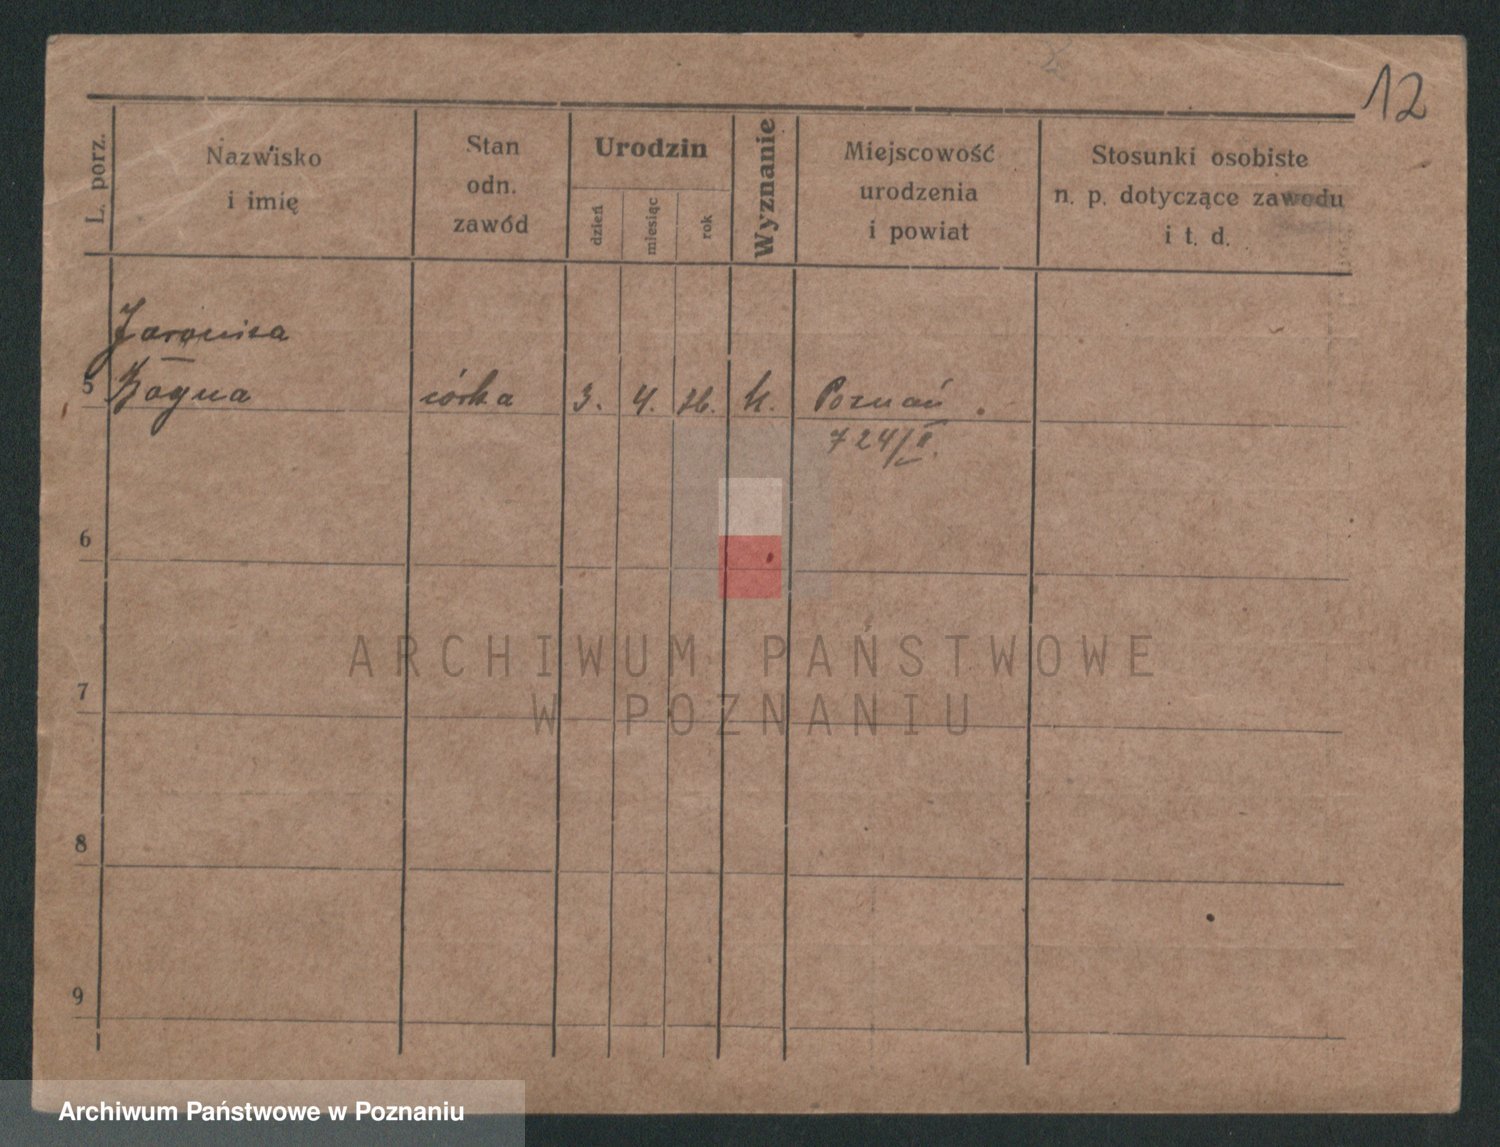 12
L. porz.
Nazwisko
i imię
Stan
odn.
zawód
Urodzin
dzień
miesiąc
rok
Wyznanie
Miejscowość
urodzenia
i powiat
Stosunki osobiste
n. p. dotyczące zawodu
i t. d.
5
Bogna
córka
3.
4.
k.
Poznań
724/II.
6
7
8
9
ARCHIWUM PAŃSTWOWE
W POZNANIU
Archiwum Państwowe w Poznaniu